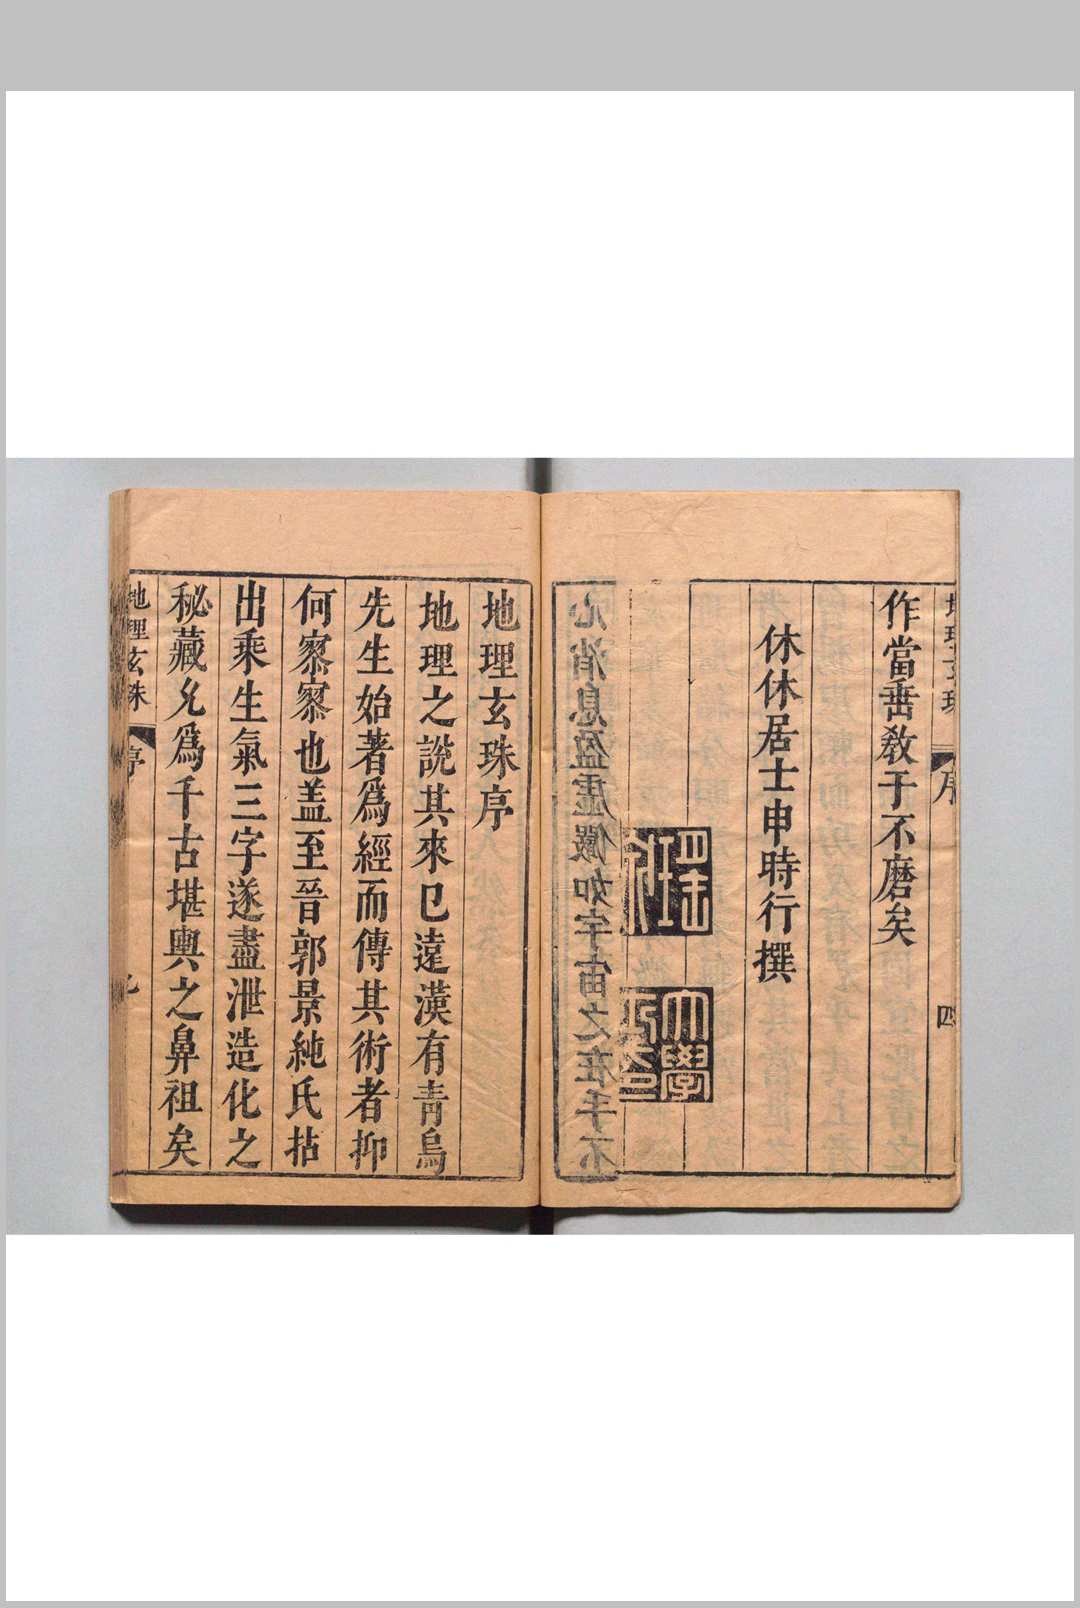 作當垂教于不磨矣
休休居士申時行撰
大學
序
四
地理玄珠序
地理之說其來已遠漢有青烏
先生始著爲經而傳其術者抑
何察察也盖至晉郭景純氏拈
出乘生氣三字遂盡泄造化之
秘藏允爲千古堪輿之鼻祖矣
地理玄珠
序